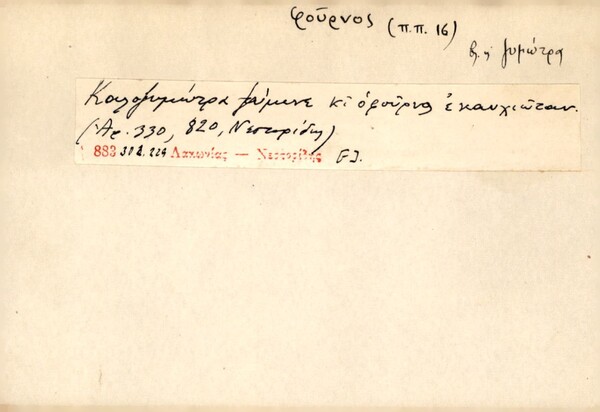 φοῦρνος (π.π. 16)
β. ἡ ζυμώτρα
Καλοζυμώτρα ζύμωνε κι ὁ φοῦρνος ἐκαυχιώταν.
(Ἀρ. 330, 820, Νεστορίδης)
883 σελ. 224 Λακωνίας — Νεστορίδης